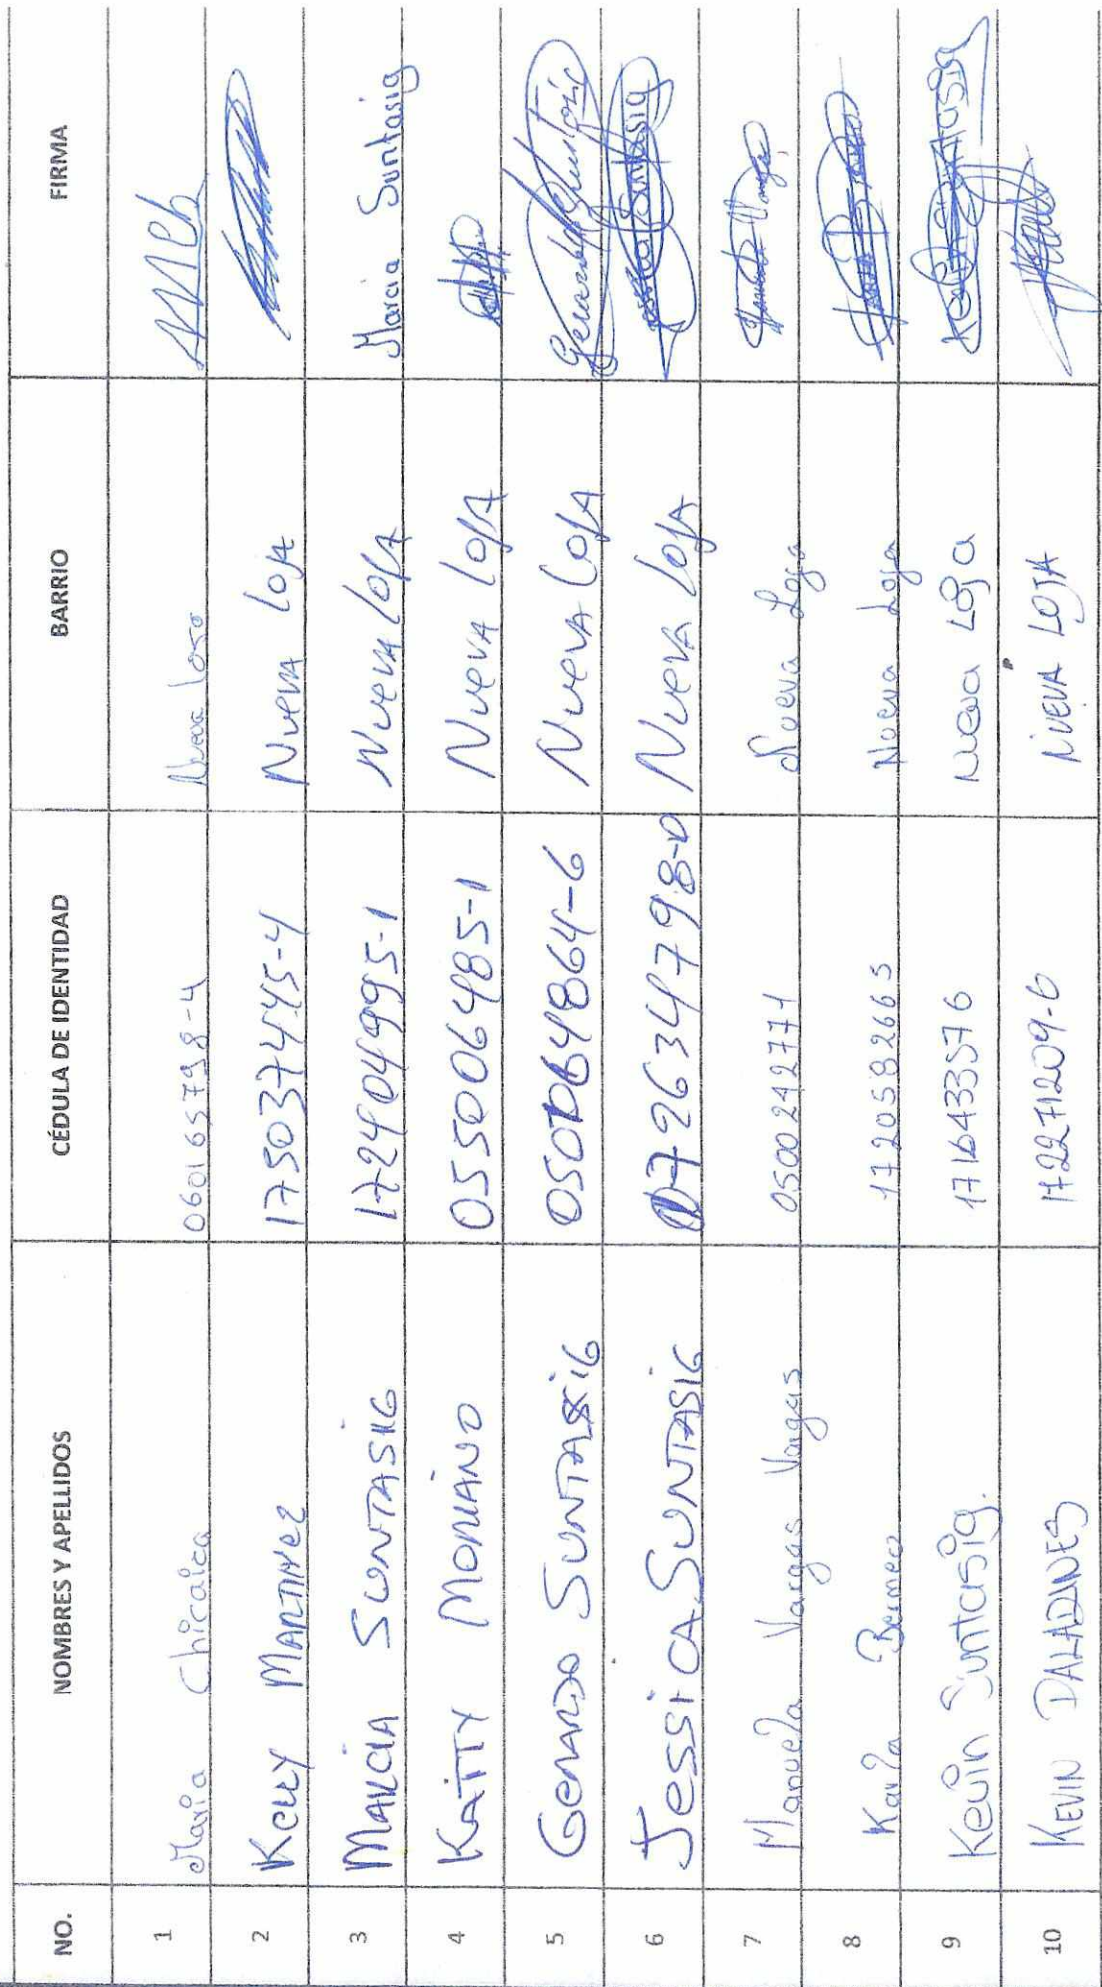 NO. NOMBRES Y APELLIDOS CÉDULA DE IDENTIDAD BARRIO FIRMA
1 Maria Chicaica 060165798-4 Nueva Loja
2 Kelly MARTINEZ 175037445-4 NUEVA LOJA
3 MARCIA SUNTASIG 172404995-1 NUEVA LOJA Marcia Suntasig
4 KATTY MORIANO 055006485-1 NUEVA LOJA
5 GERARDO SUNTASIG 050064864-6 NUEVA LOJA Gerardo Suntasig
6 JESSICA SUNTASIG 172634798-0 NUEVA LOJA Jessica Suntasig
7 Manuela Vargas Vargas 0500242771 Nueva Loja Manuela Vargas
8 Karla Bermeo 1720582665 Nueva Loja
9 Kevin Suntasig. 1716433576 Nueva Loja Kevin Suntasig
10 KEVIN PALADINES 172271209-6 NUEVA LOJA